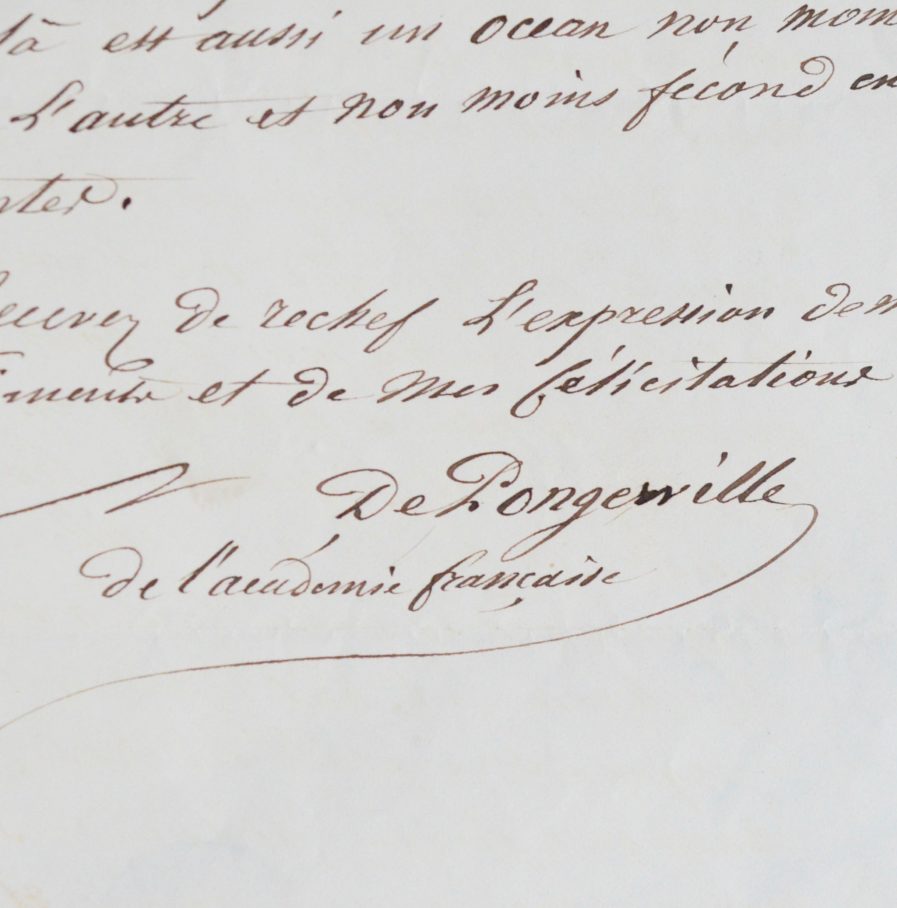 là est aussi un ocean non moin
L'autre et non moins fécond en
ntes.
ecevez de rechef L'expression de m
iments et de mes félicitations
De Pongerville
de l'académie française